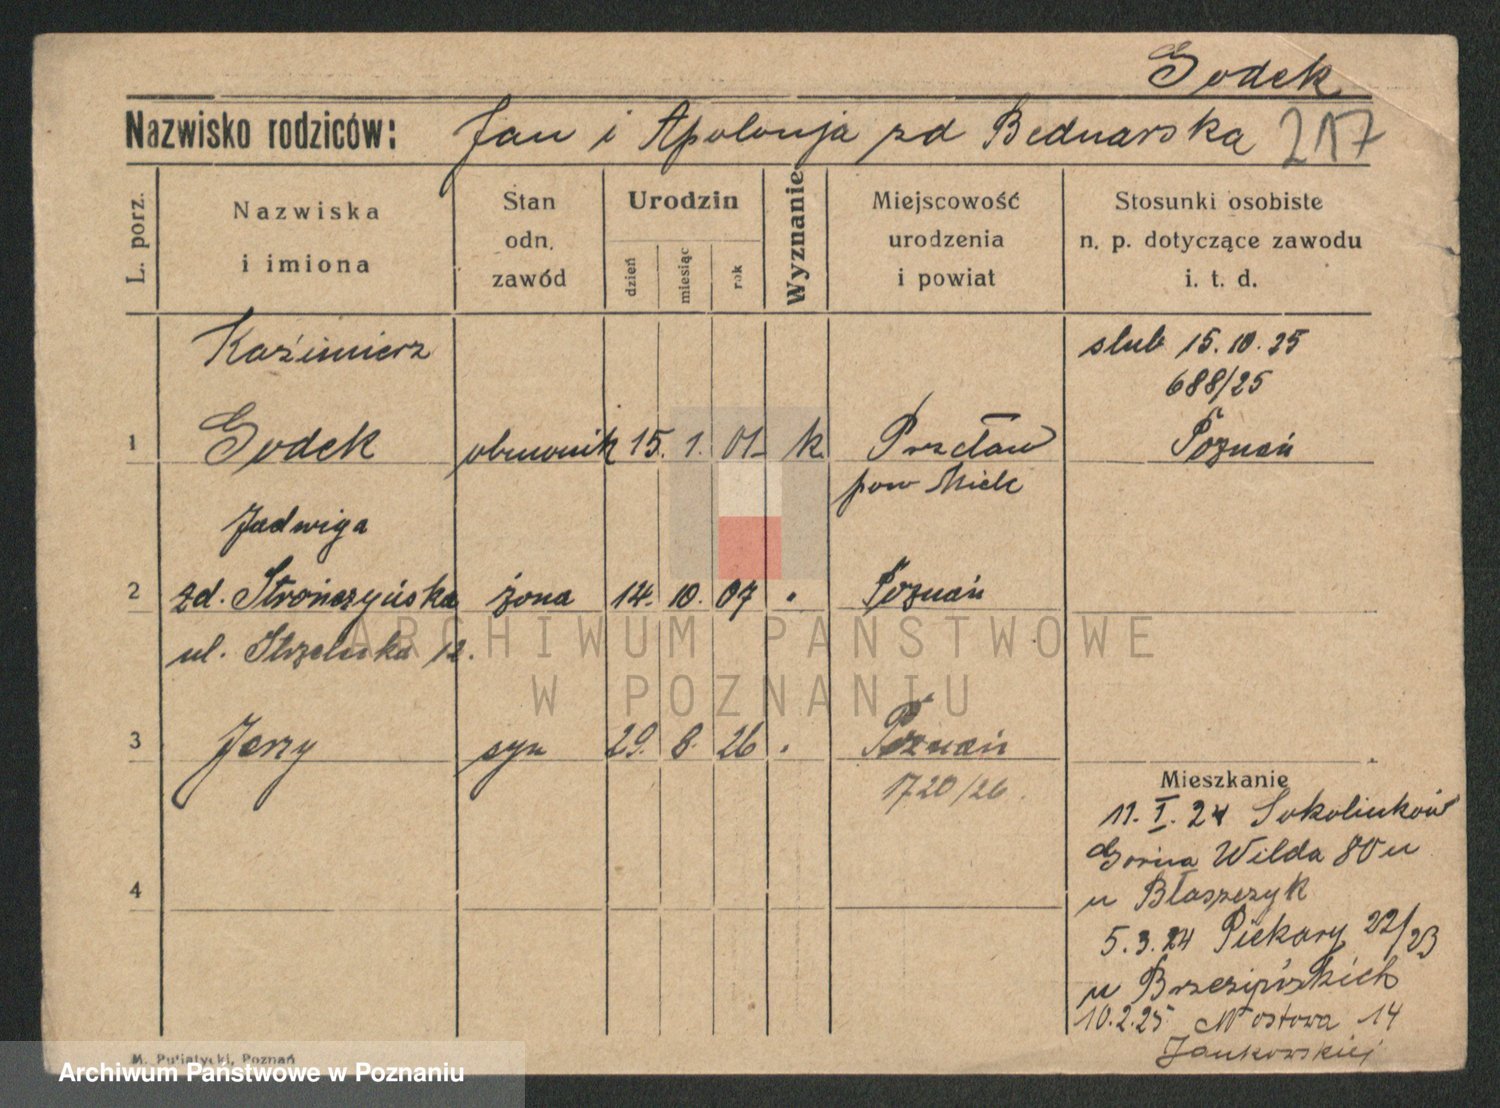 Godek
Nazwisko rodziców: Jan i Apolonja zd Bednarska 217
L. porz.
Nazwiska
i imiona
Stan
odn.
zawód
Urodzin
dzień
miesiąc
rok
Wyznanie
Miejscowość
urodzenia
i powiat
Stosunki osobiste
n. p. dotyczące zawodu
i. t. d.
Kaźimierz
slub 15.10.25
688/25
1 Godek obuwnik 15. 1. 01 k Przcław Poznań
pow Mielc
Jadwiga
2 zd. Strończyńska żona 14. 10. 07 " Poznań
ul. Strzelecka 12.
ARCHIWUM PAŃSTWOWE
W POZNANIU
3 Jerzy syn 29. 8. 26 " Poznań
1720/26.
Mieszkanie
11. I. 24
Górna Wilda 80 u
u Błaszczyk
4
5.3.24 Piekary 22/23
u Brzezińskich
10.2.25 Mostowa 14
Jankowskiej
M. Putiatycki, Poznań
Archiwum Państwowe w Poznaniu